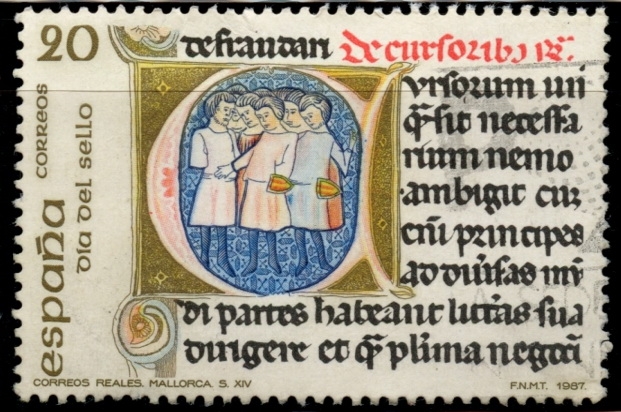 20
CORREOS
españa
día del sello
defraudari De cursoribus
ursorum usu
q̃ sit necessa
rium nemo
ambigit cur
cũ principes
ad diuĩsas mũ
di partes habeant litt̃as sua
dirigere et q̃ pl̃ima negoci
CORREOS REALES. MALLORCA. S. XIV
F.N.M.T. 1987